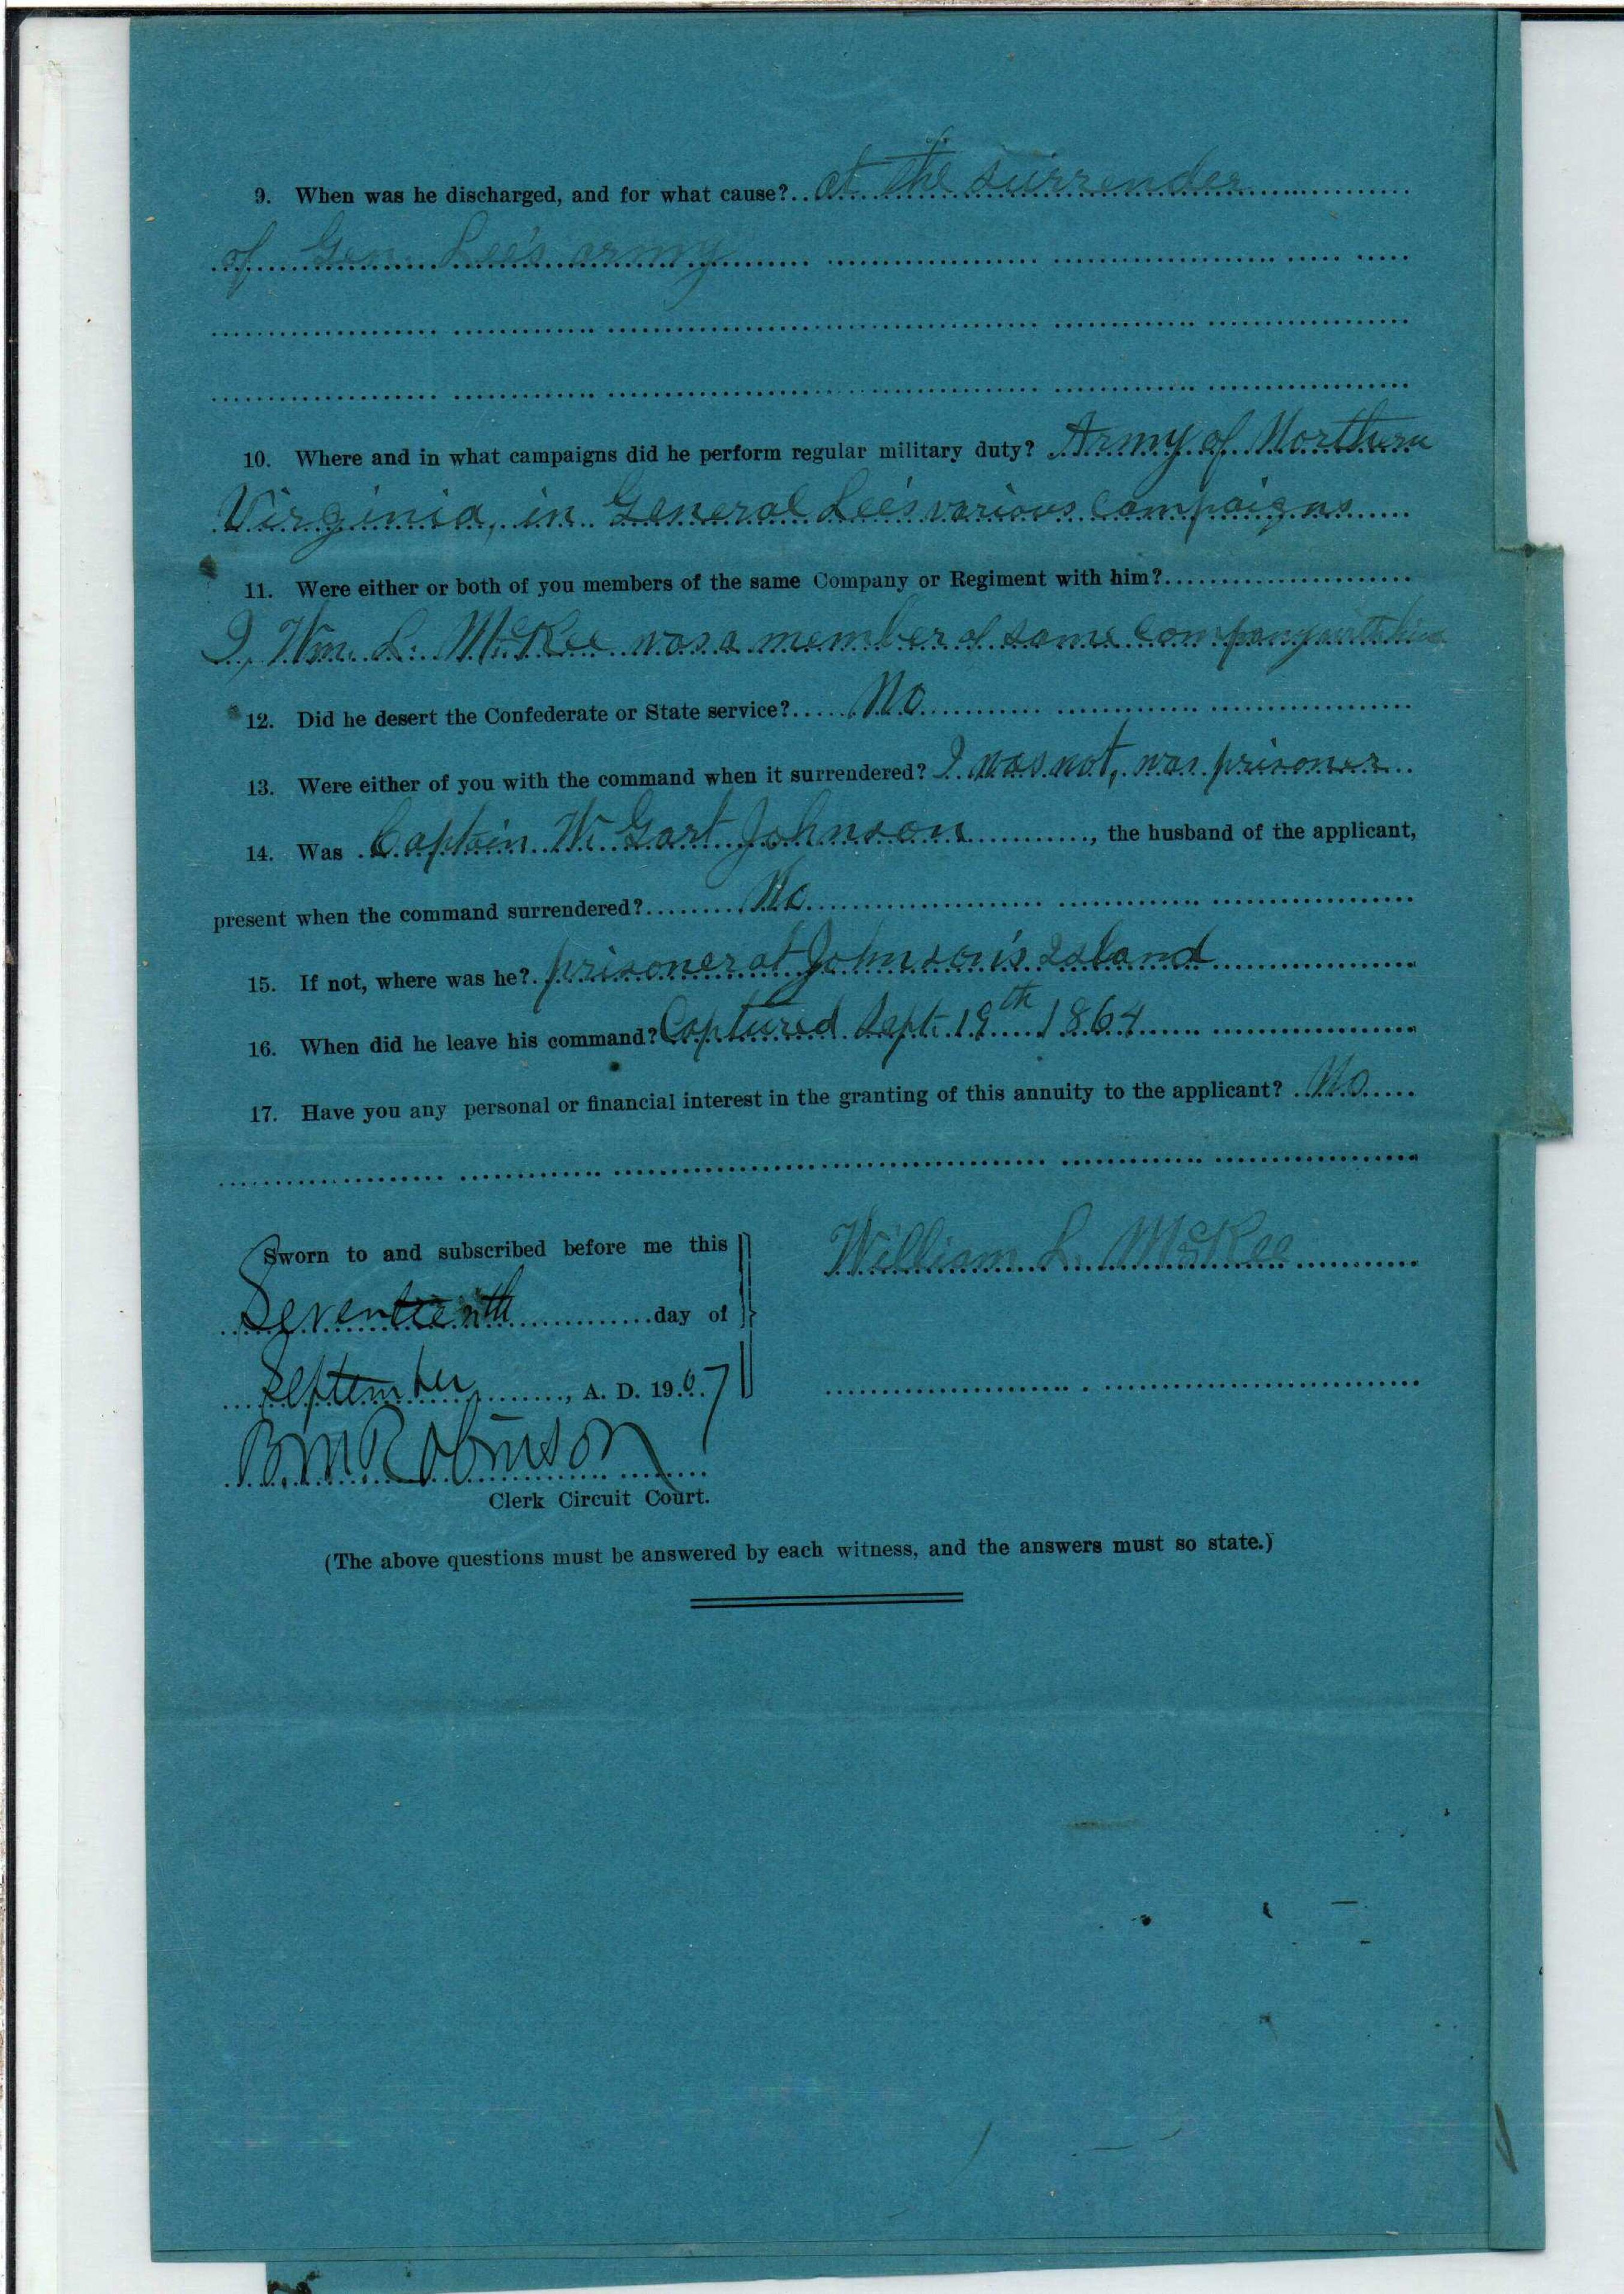 9. When was he discharged, and for what cause? at the surrender
of Gen. Lee's army
10. Where and in what campaigns did he perform regular military duty? Army of Northern
Virginia, in General Lee's various campaigns
11. Were either or both of you members of the same Company or Regiment with him?
I, Wm. L. McKee was a member of same company with him
12. Did he desert the Confederate or State service? No
13. Were either of you with the command when it surrendered? I was not, was prisoner
14. Was Captain W. Gart Johnson, the husband of the applicant,
present when the command surrendered? No
15. If not, where was he? prisoner at Johnson's Island
16. When did he leave his command? Captured Sept. 19th 1864
17. Have you any personal or financial interest in the granting of this annuity to the applicant? No
Sworn to and subscribed before me this
William L. McKee
Seventeenth day of
September, A. D. 1907
B.M. Robinson
Clerk Circuit Court.
(The above questions must be answered by each witness, and the answers must so state.)